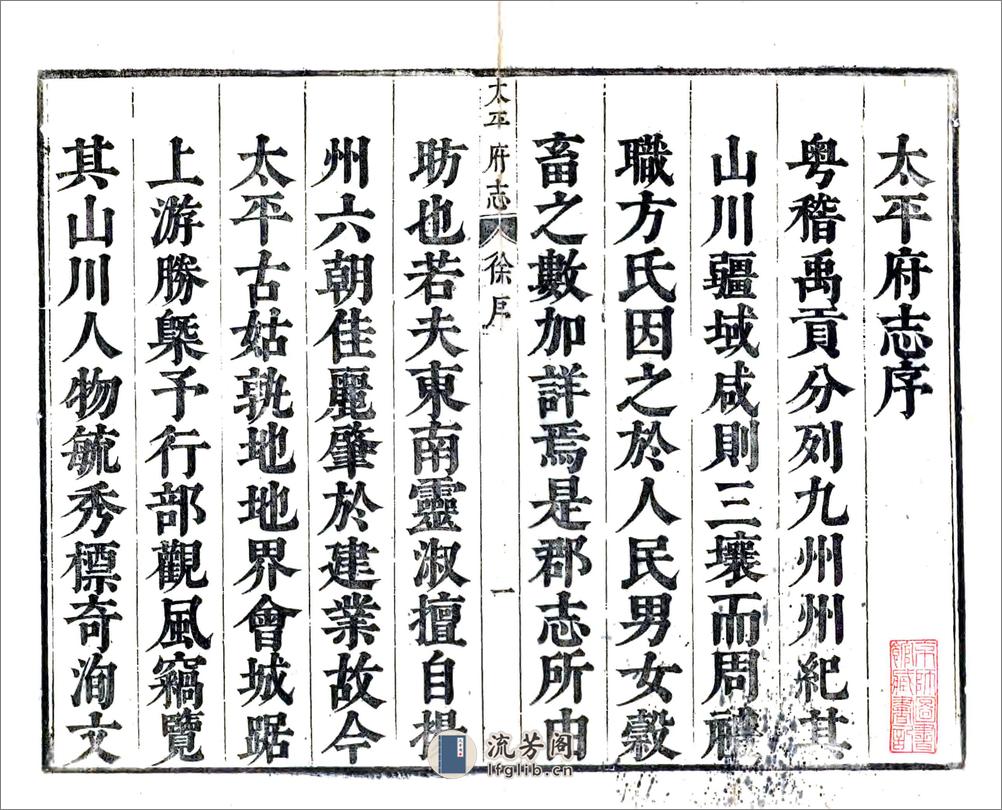 太平府志序
粤稽禹貢分列九州州紀其
山川疆域咸則三壤而周禮
職方氏因之於人民男女穀
畜之數加詳焉是郡志所由
太平府志 徐序 一
昉也若夫東南靈淑擅自揚
州六朝佳麗肇於建業故今
太平古姑孰地地界會城踞
上游勝槩予行部觀風竊覽
其山川人物毓秀標奇洵文
京師圖書
館藏書記
流芳阁
lfglib.cn